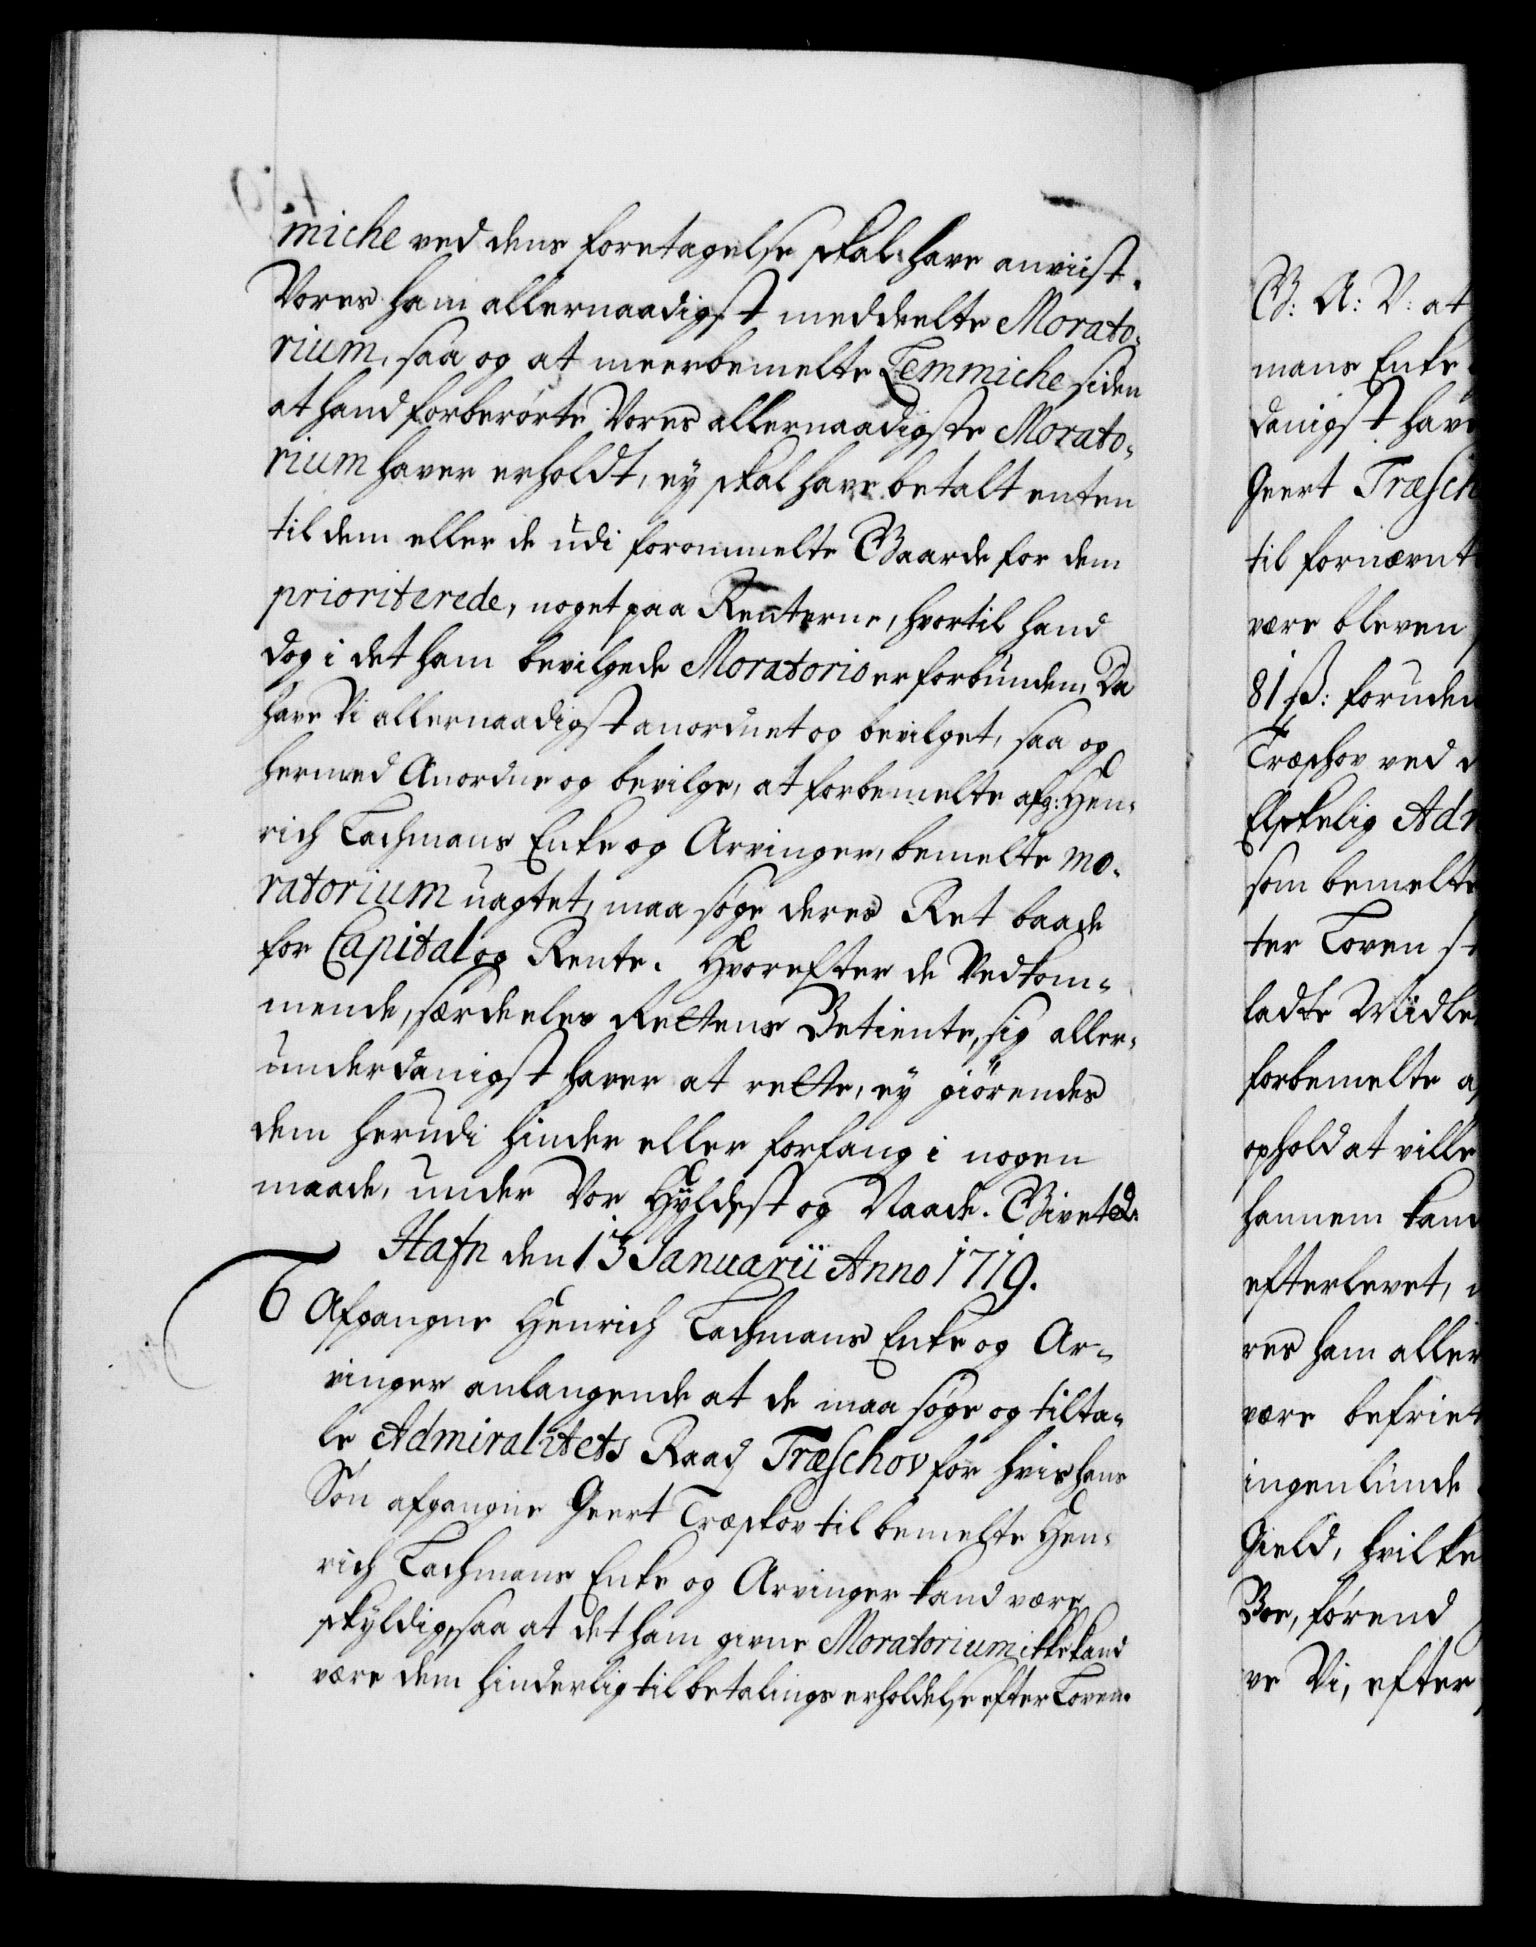 miche ved dens foretagelse skal have anviist.
Vores ham allernaadigst meddeelte Morato-
rium, saa og at meerbemelte Lemmiche siden
at hand forberørte Vores allernaadigste Morato-
rium haver erholdt, ey skal have betalt enten
til dem eller de udi forommelte Gaarde for dem
prioriterede, noget paa Renterne, hvortil hand
dog i det ham bevilgede Moratorio er forbunden, Da
have Vi allernaadigst anordnet og bevilget, saa og
hermed Anordne og bevilge, at forbemelte afg: Hen-
rich Lachmans Enke og Arvinger, bemelte mo-
ratorium uagtet, maa søge deres Ret baade
for Capital og Rente. Hvorefter de Vedkom-
mende, særdeeles Rettens Betiente, sig aller-
underdanigst haver at rette, ey giørendes
dem herudi hinder eller forfang i nogen
maade, under Vor Hyldest og Naade. Givet &.
Hafn den 13 Januarii Anno 1719.
Afgangne Henrich Lachmans Enke og Ar-
vinger anlangende at de maa søge og tilta-
le Admiralitets Raad Træschov for hvis hans
Søn afgangne Geert Træskov til bemelte Hen-
rich Lachmans Enke og Arvinger kand være
skyldig, saa at det ham givne Moratorium ikke kand
være dem hinderlig til betalings erholdelse efter Loven.
G: A: V: at
mans Enke
danigst have
Geert Træsch
til fornævnt
være bleven
81 ß: foruden
Træschov ved
Elskelig Adm
som bemelte
ter Loven
ladte Midle
forbemelte a
ophold at ville
hannem kand
efterlevet,
res ham aller
være befriet
ingenlunde
Gield, hvilke
Boe, førend
ve Vi, efter